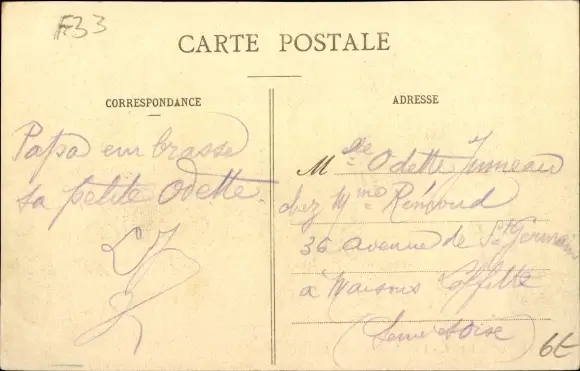 F33
CARTE POSTALE
CORRESPONDANCE
Papa embrasse
sa petite Odette.
LJ
ADRESSE
Mlle Odette Jumeau
chez Mme Renoud
35 avenue de St Germain
à Maisons Laffitte
(Seine et Oise)
6€